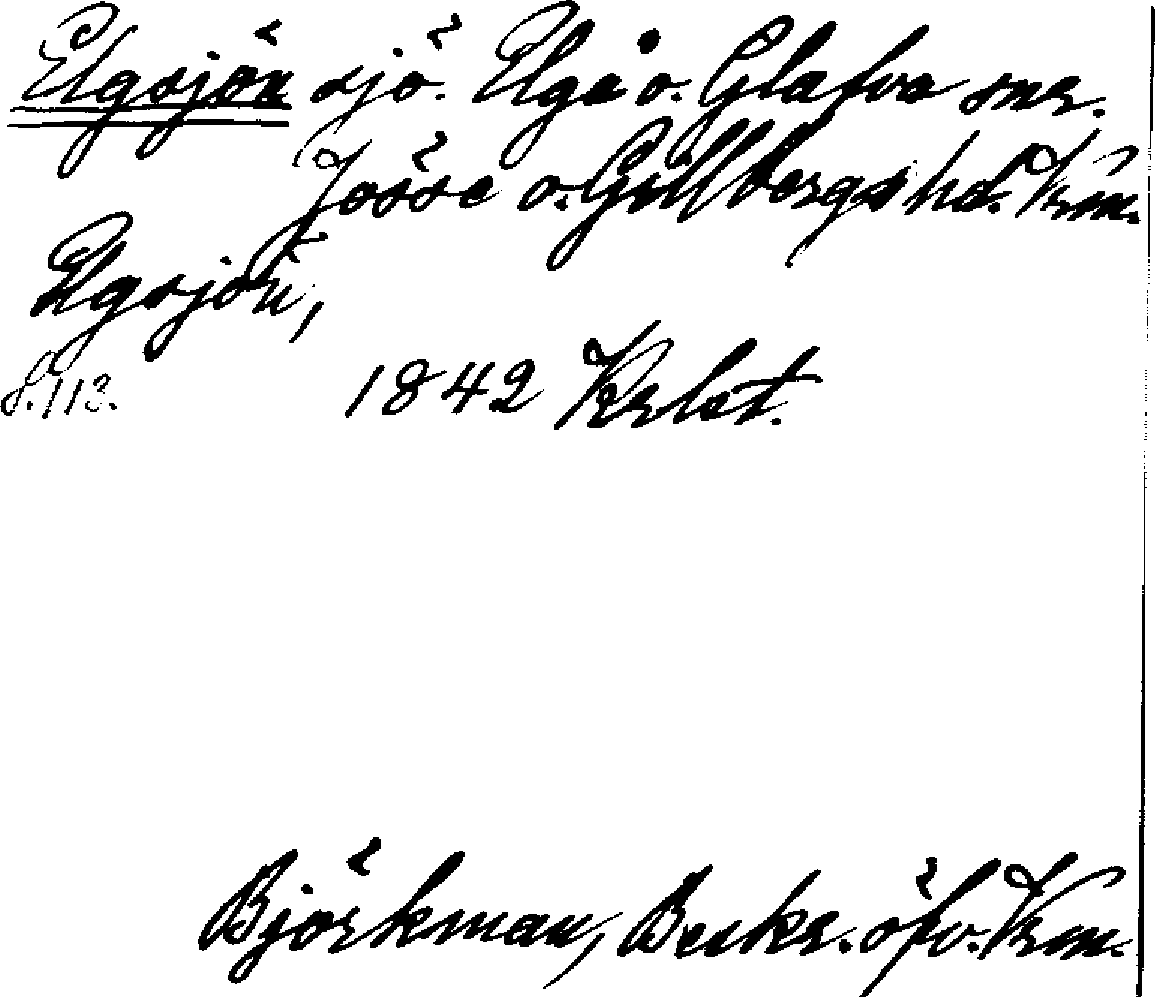 Elgsjön sjö. Elgå o. Glafva snr.
Jösse o. Gillbergs hd. Vrm.
Elgsjön,
s. 113. 1842 Krlst.
Björkman, Beskr. öfv. Vrm.